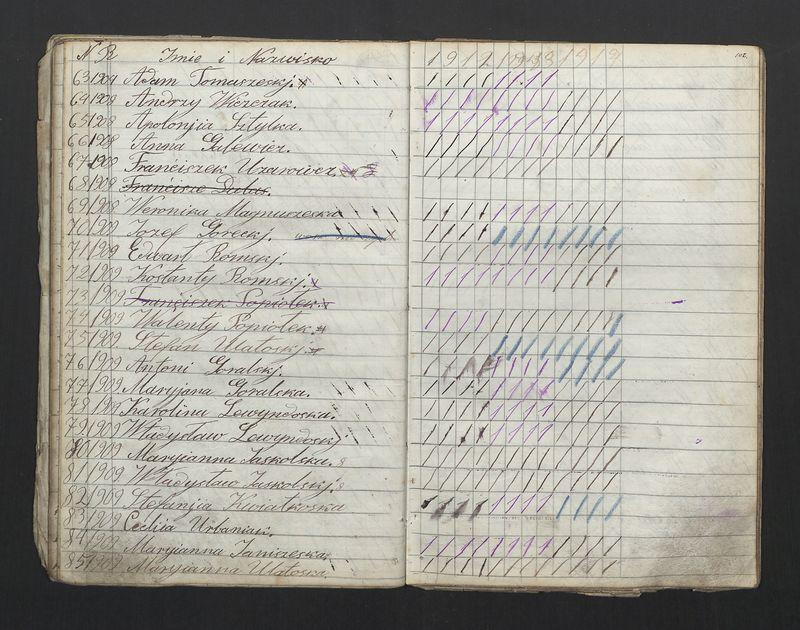 N R Imie i Nazwisko
63/1909 Adam Tomaszeskj.
64/1908 Andrzy Wierczak.
65/1908 Apolonjia Sztylka.
66/1908 Anna Galewicz.
67/1909 Franciszek Uzarowicz
68/1909 Francisze Dubas.
69/1908 Weronika Magnuszeska
70/1909 Jozef Goreckj.
71/1909 Edwart Romskj.
72/1909 Kostanty Romskj.
73/1909 Franciszek Popiołek.
74/1909 Walenty Popiołek.
75/1909 Stefan Ulatoskj.
76/1909 Antoni Goralskj.
77/1909 Maryjana Goralska.
78/1909 Karolina Lewyndoska.
79/1909 Władysław Lewyndoskj
80/1909 Maryianna Jaskolska.
81/1909 Władysław Jaskolskj.
82/1909 Stefanjia Kwiatkoska
83/1909 Cecliia Urbaniak.
84/1909 Maryianna Janiszeska.
85/1909 Maryianna Ulatoska.
1912 1913 1919
102.